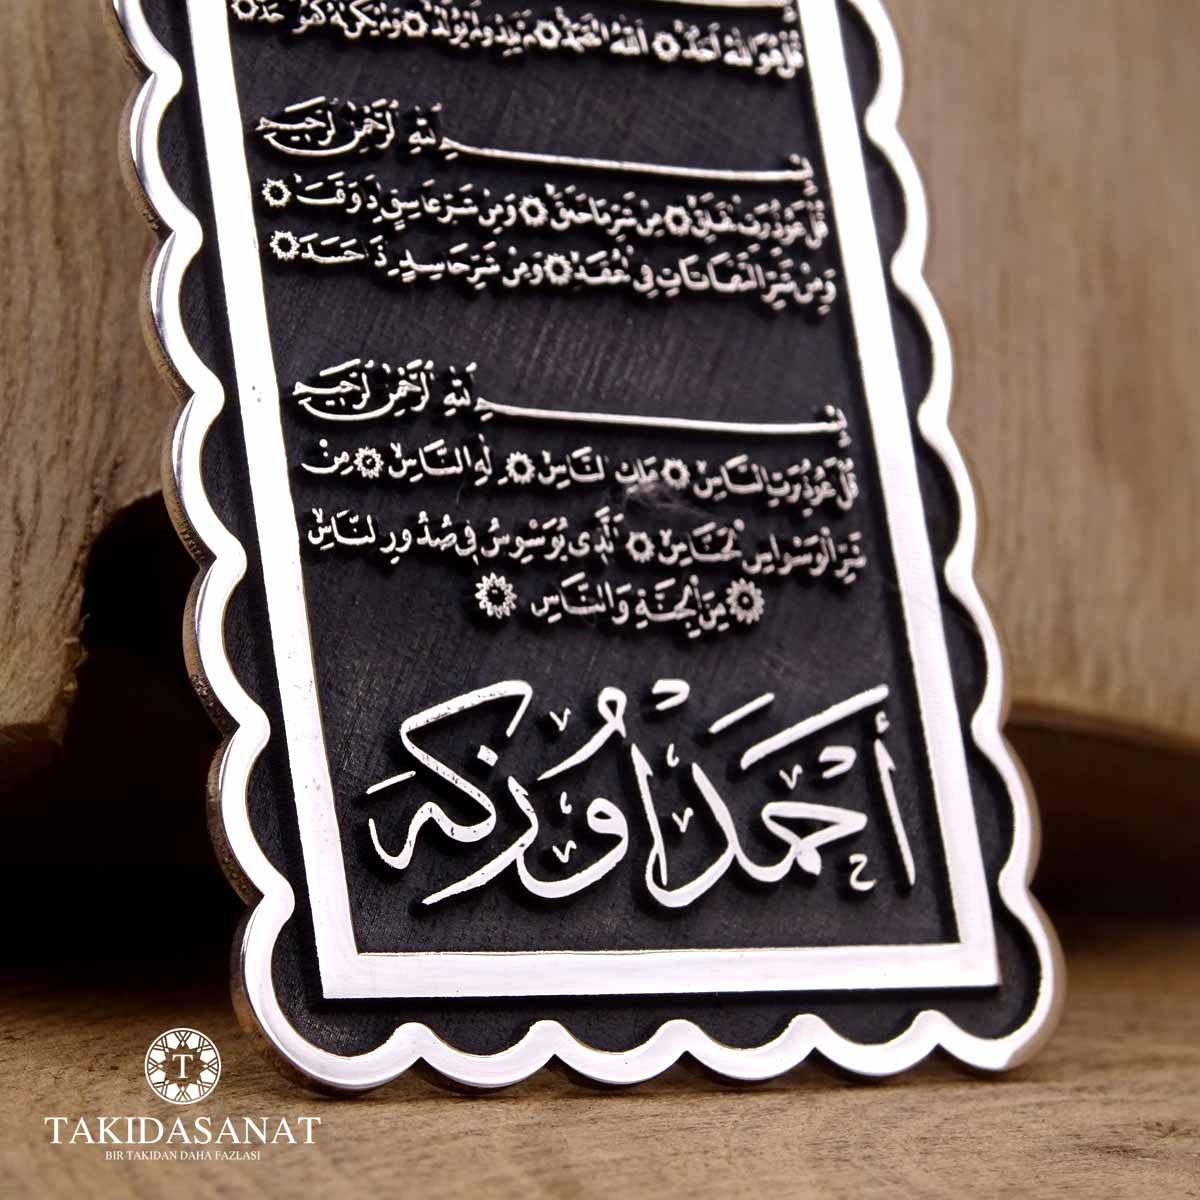 قُلْ هُوَ اللهُ اَحَدٌ ۞ اَللهُ الصَّمَدُ ۞ لَمْ يَلِدْ وَلَمْ يُولَدْ ۞ وَلَمْ يَكُنْ لَهُ كُفُوًا اَحَدٌ ۞
بِسْمِ اللهِ الرَّحْمٰنِ الرَّحِيمِ
قُلْ اَعُوذُ بِرَبِّ الْفَلَقِ ۞ مِنْ شَرِّ مَا خَلَقَ ۞ وَمِنْ شَرِّ غَاسِقٍ اِذَا وَقَبَ ۞
وَمِنْ شَرِّ النَّفَّاثَاتِ فِي الْعُقَدِ ۞ وَمِنْ شَرِّ حَاسِدٍ اِذَا حَسَدَ ۞
بِسْمِ اللهِ الرَّحْمٰنِ الرَّحِيمِ
قُلْ اَعُوذُ بِرَبِّ النَّاسِ ۞ مَلِكِ النَّاسِ ۞ اِلٰهِ النَّاسِ ۞ مِنْ
شَرِّ الْوَسْوَاسِ الْخَنَّاسِ ۞ اَلَّذِي يُوَسْوِسُ فِي صُدُورِ النَّاسِ
۞ مِنَ الْجِنَّةِ وَالنَّاسِ ۞
أحمد اوزكه
TAKIDASANAT
BIR TAKIDAN DAHA FAZLASI